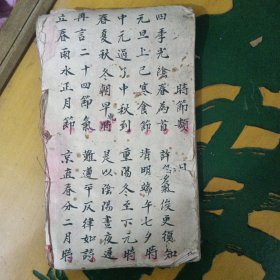 時節類
四季光陰春為首 詳氣候更復知
元旦上巳寒食節 清明端午七夕時
中元過了中秋到 重陽冬至下元時
春夏秋冬朝早時 是以陰陽晝夜運
再言二十四節氣 難遵平仄律如詩
立春雨水正月節 京直春分二月時